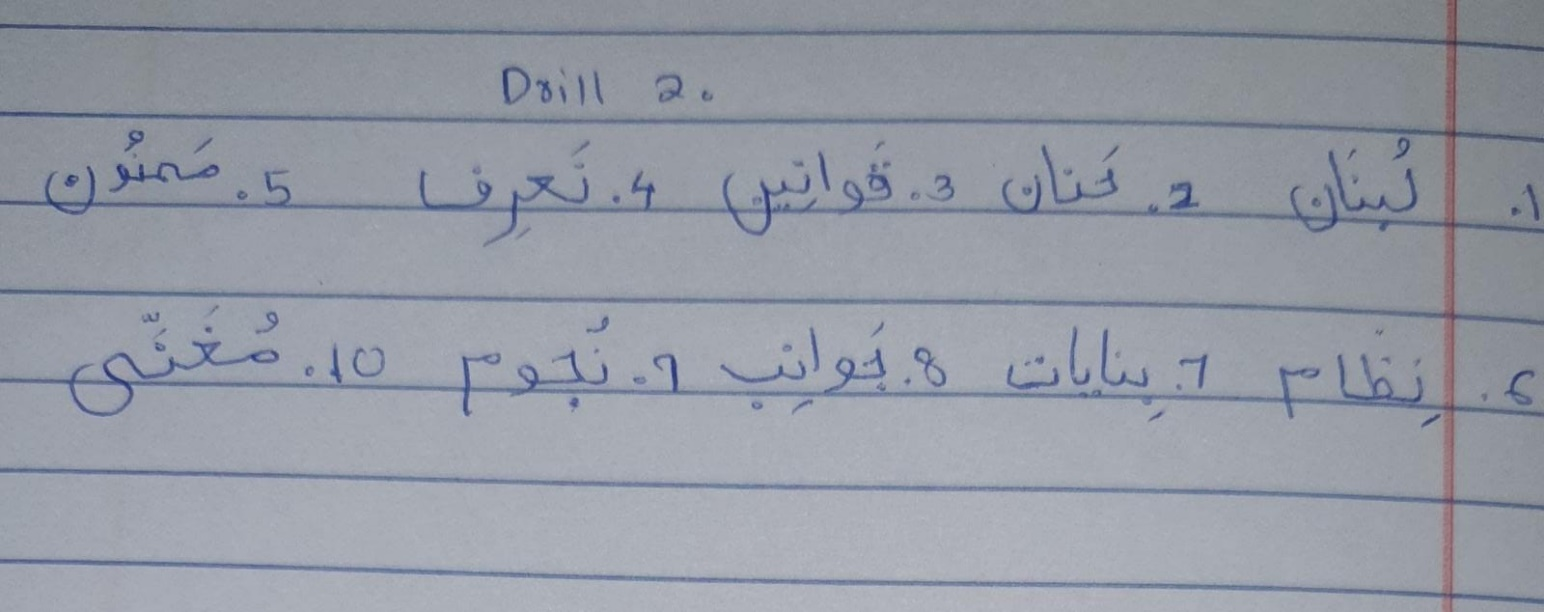 Drill 2.
1. لُبنَان 2. حَنان 3. قَوانِين 4. نَعرِف 5. مَمنُون
6. نِظَام 7. بِنايات 8. جَوانِب 9. نُجوم 10. مُغَنّى